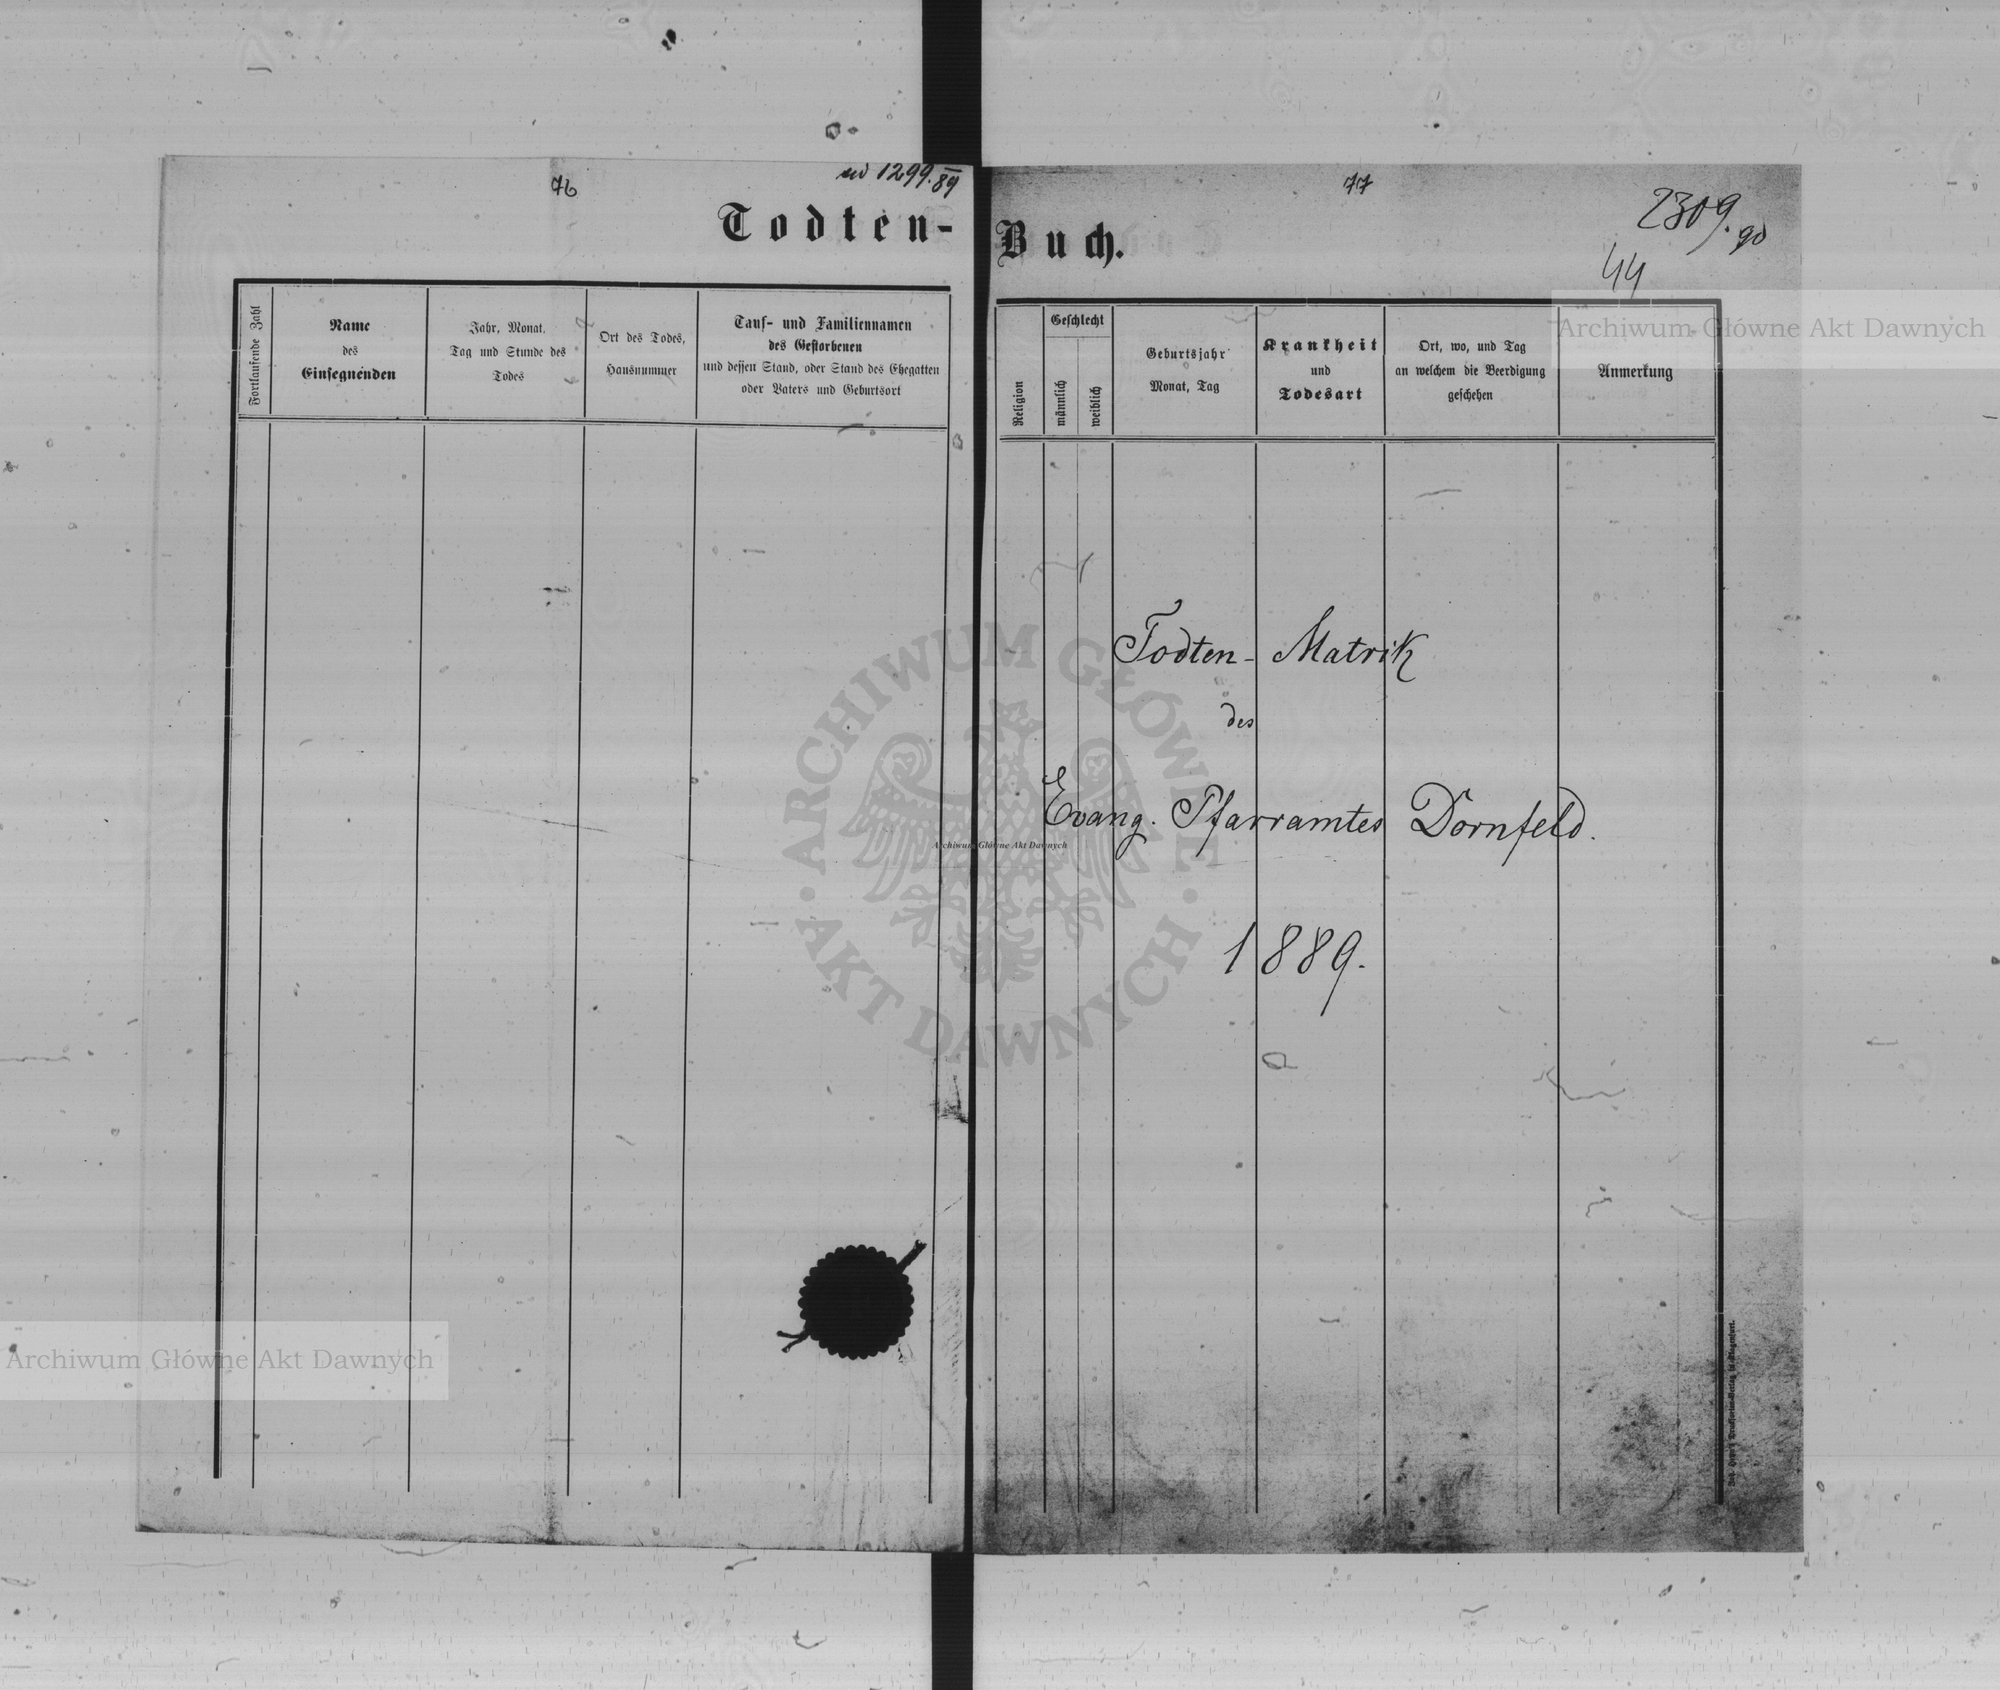 76
ad 1299. 89
Todten-
Fortlaufende Zahl
Name
des
Einsegnenden
Jahr, Monat,
Tag und Stunde des
Todes
Ort des Todes,
Hausnummer
Tauf- und Familiennamen
des Gestorbenen
und dessen Stand, oder Stand des Ehegatten
oder Vaters und Geburtsort
77
2309. 90
44
Buch.
Religion
Geschlecht
männlich
weiblich
Geburtsjahr
Monat, Tag
Krankheit
und
Todesart
Ort, wo, und Tag
an welchem die Beerdigung
geschehen
Anmerkung
Todten-Matrik
des
Evang. Pfarramtes Dornfeld.
1889.
Archiwum Główne Akt Dawnych
ARCHIWUM GŁÓWNE
AKT DAWNYCH
Archiwum Główne Akt Dawnych
Archiwum Główne Akt Dawnych